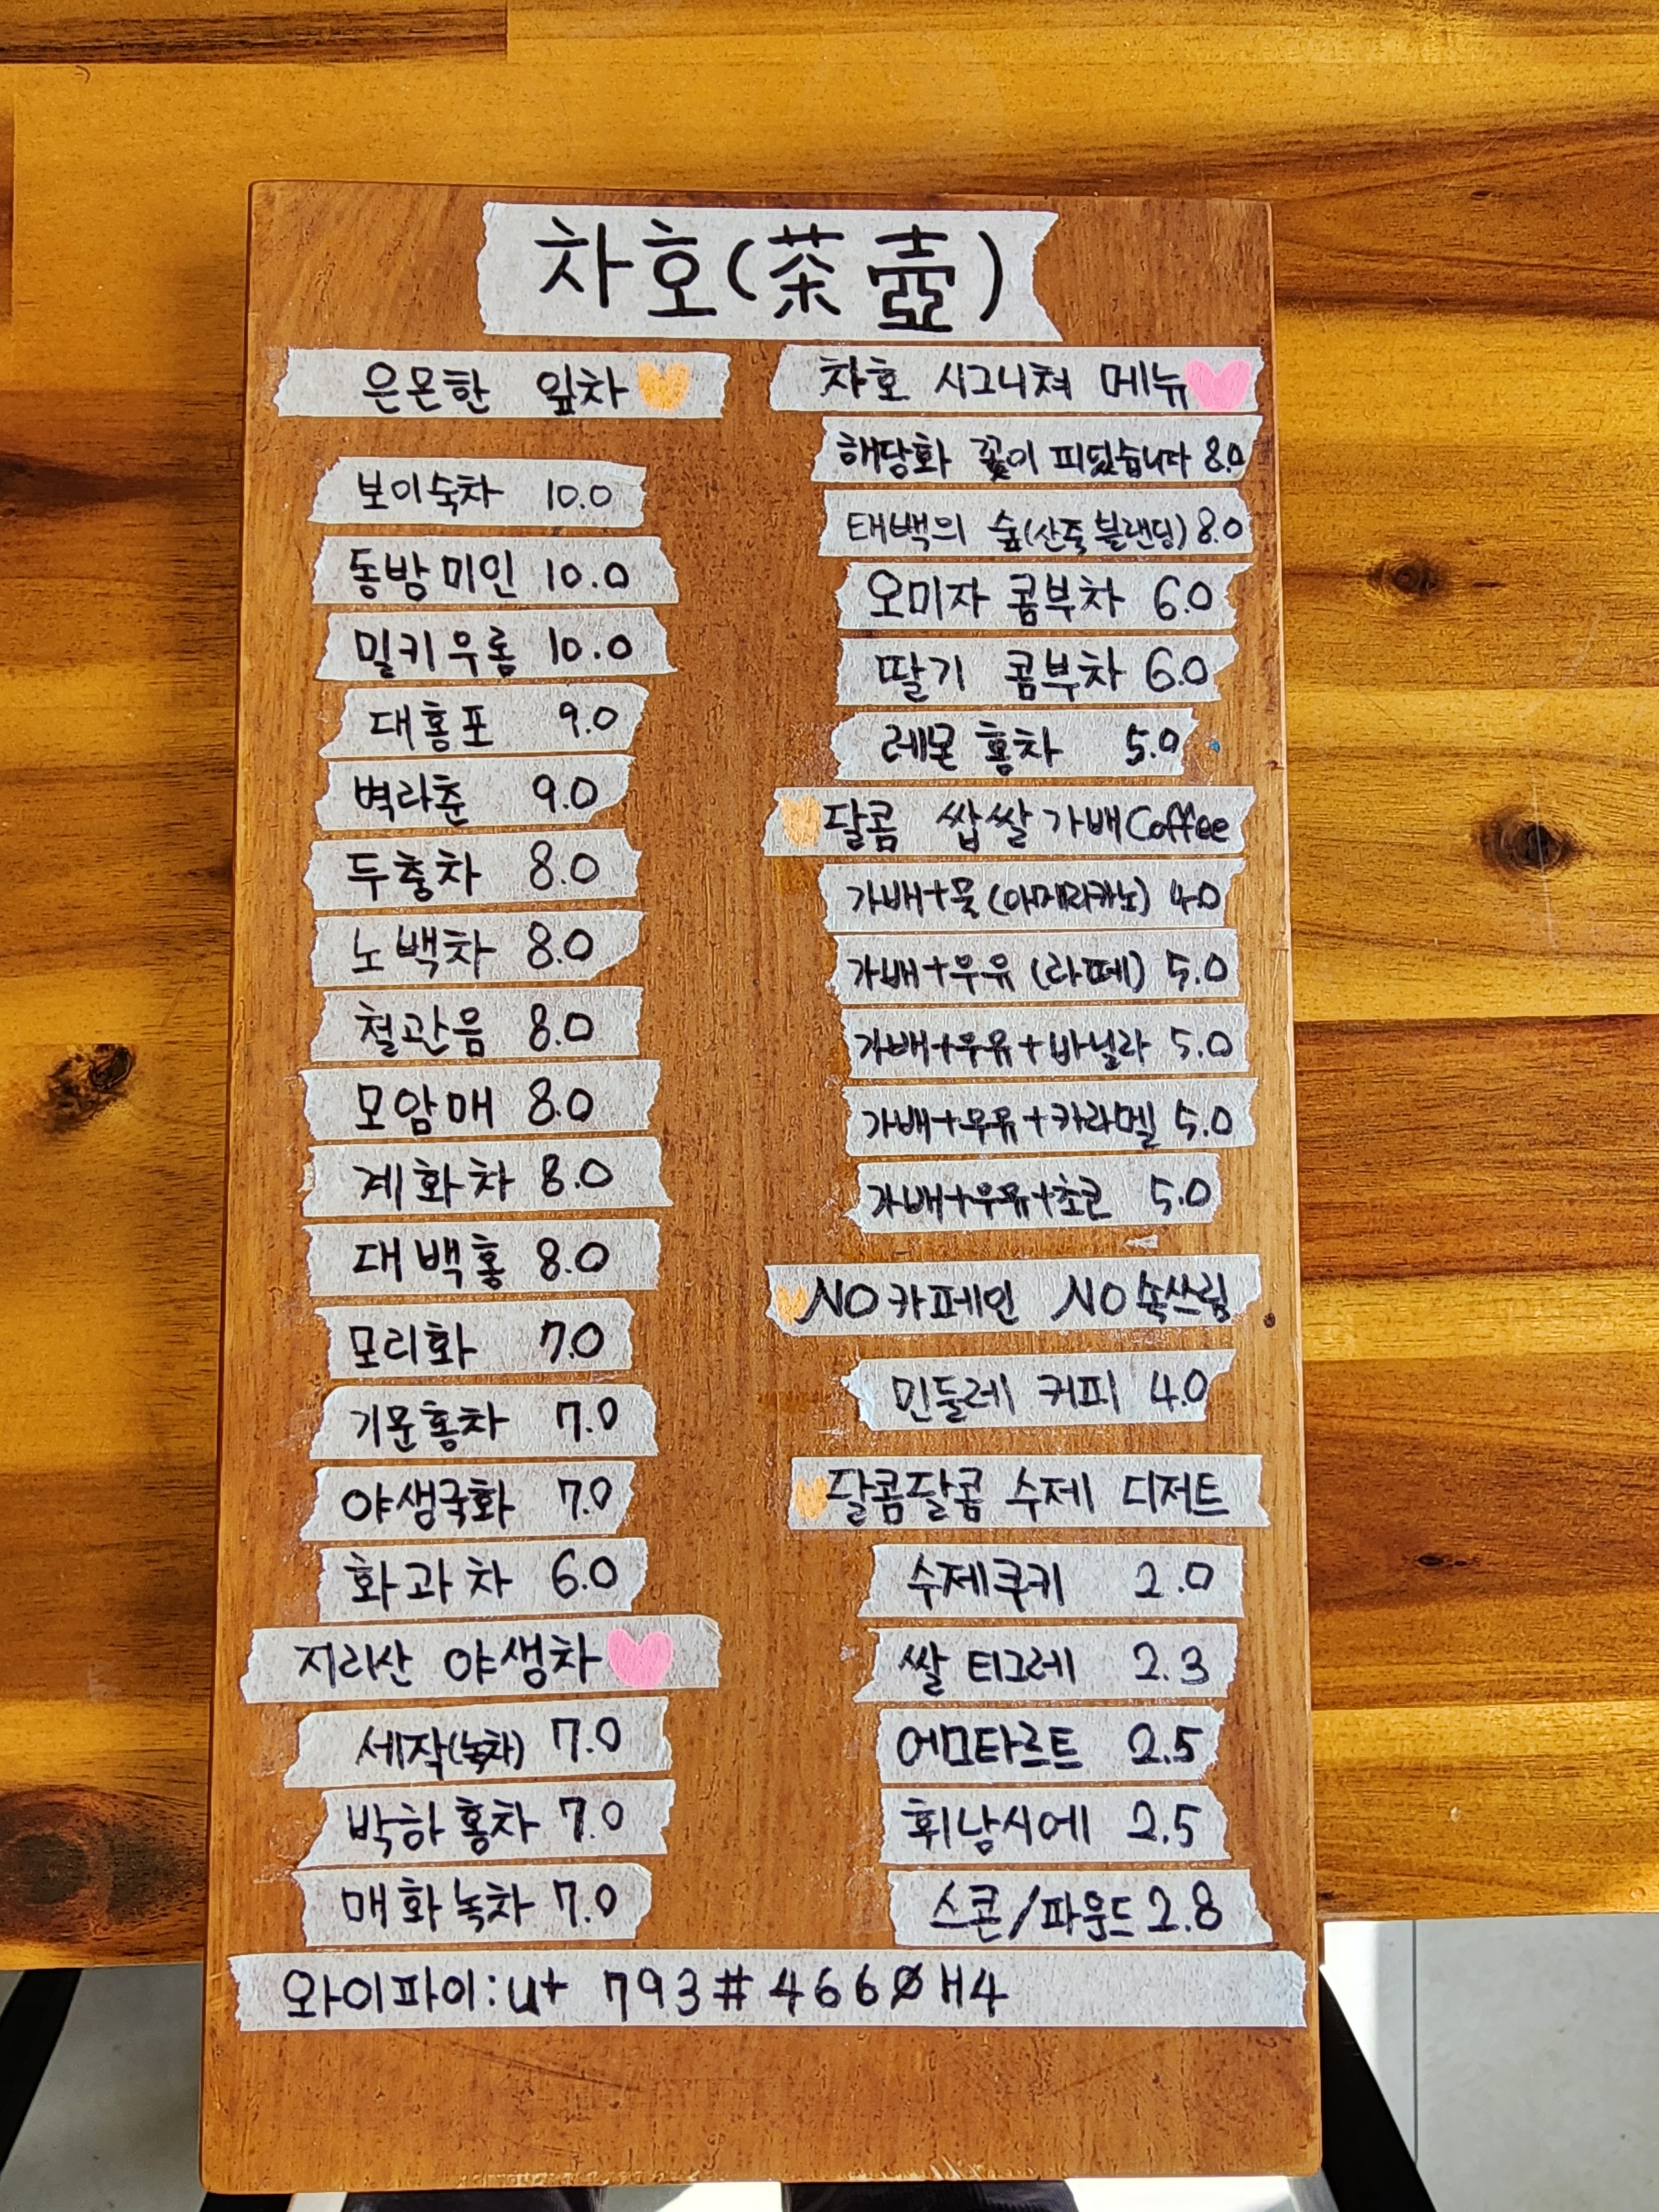 차호(茶壺)
은은한 잎차
보이숙차 10.0
동방미인 10.0
밀키우롱 10.0
대홍포 9.0
벽라춘 9.0
두충차 8.0
노백차 8.0
철관음 8.0
모암매 8.0
계화차 8.0
대백홍 8.0
모리화 7.0
기문홍차 7.0
야생국화 7.0
화과차 6.0
지리산 야생차
세작(녹차) 7.0
박하홍차 7.0
매화녹차 7.0
차호 시그니쳐 메뉴
해당화 꽃이 피었습니다 8.0
태백의 숲(산죽 블랜딩) 8.0
오미자 콤부차 6.0
딸기 콤부차 6.0
레몬 홍차 5.0
달콤 쌉쌀 가배Coffee
가배+물(아메리카노) 4.0
가배+우유(라떼) 5.0
가배+우유+바닐라 5.0
가배+우유+카라멜 5.0
가배+우유+초코 5.0
NO카페인 NO속쓰림
민들레 커피 4.0
달콤달콤 수제 디저트
수제쿠키 2.0
쌀 티그레 2.3
에그타르트 2.5
휘낭시에 2.5
스콘/파운드 2.8
와이파이:U+ 793#4660H4